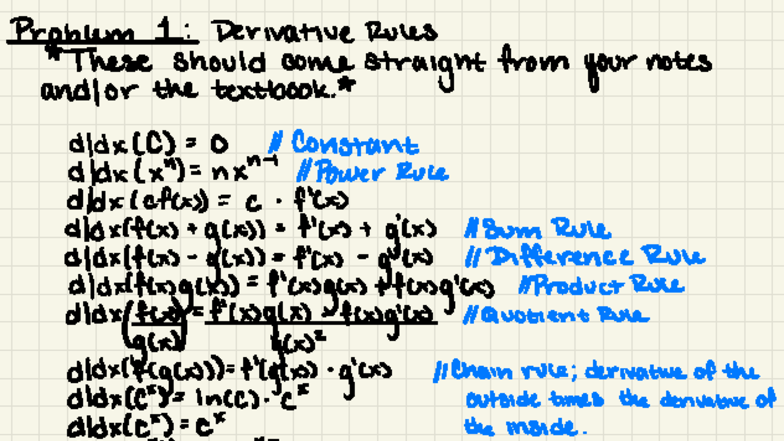 Problem 1: Derivative Rules
*These should come straight from your notes
and/or the textbook.*
d/dx(C) = 0 // Constant
d/dx(xⁿ) = nxⁿ⁻¹ // Power Rule
d/dx(cf(x)) = c · f'(x)
d/dx(f(x) + g(x)) = f'(x) + g'(x) // Sum Rule
d/dx(f(x) - g(x)) = f'(x) - g'(x) // Difference Rule
d/dx(f(x)g(x)) = f'(x)g(x) + f(x)g'(x) // Product Rule
d/dx(f(x)/g(x)) = f'(x)g(x) - f(x)g'(x) / g(x)² // Quotient Rule
d/dx(f(g(x))) = f'(g(x)) · g'(x) // Chain rule; derivative of the
d/dx(Cˣ) = ln(C) · Cˣ outside times the derivative of
d/dx(eˣ) = eˣ the inside.